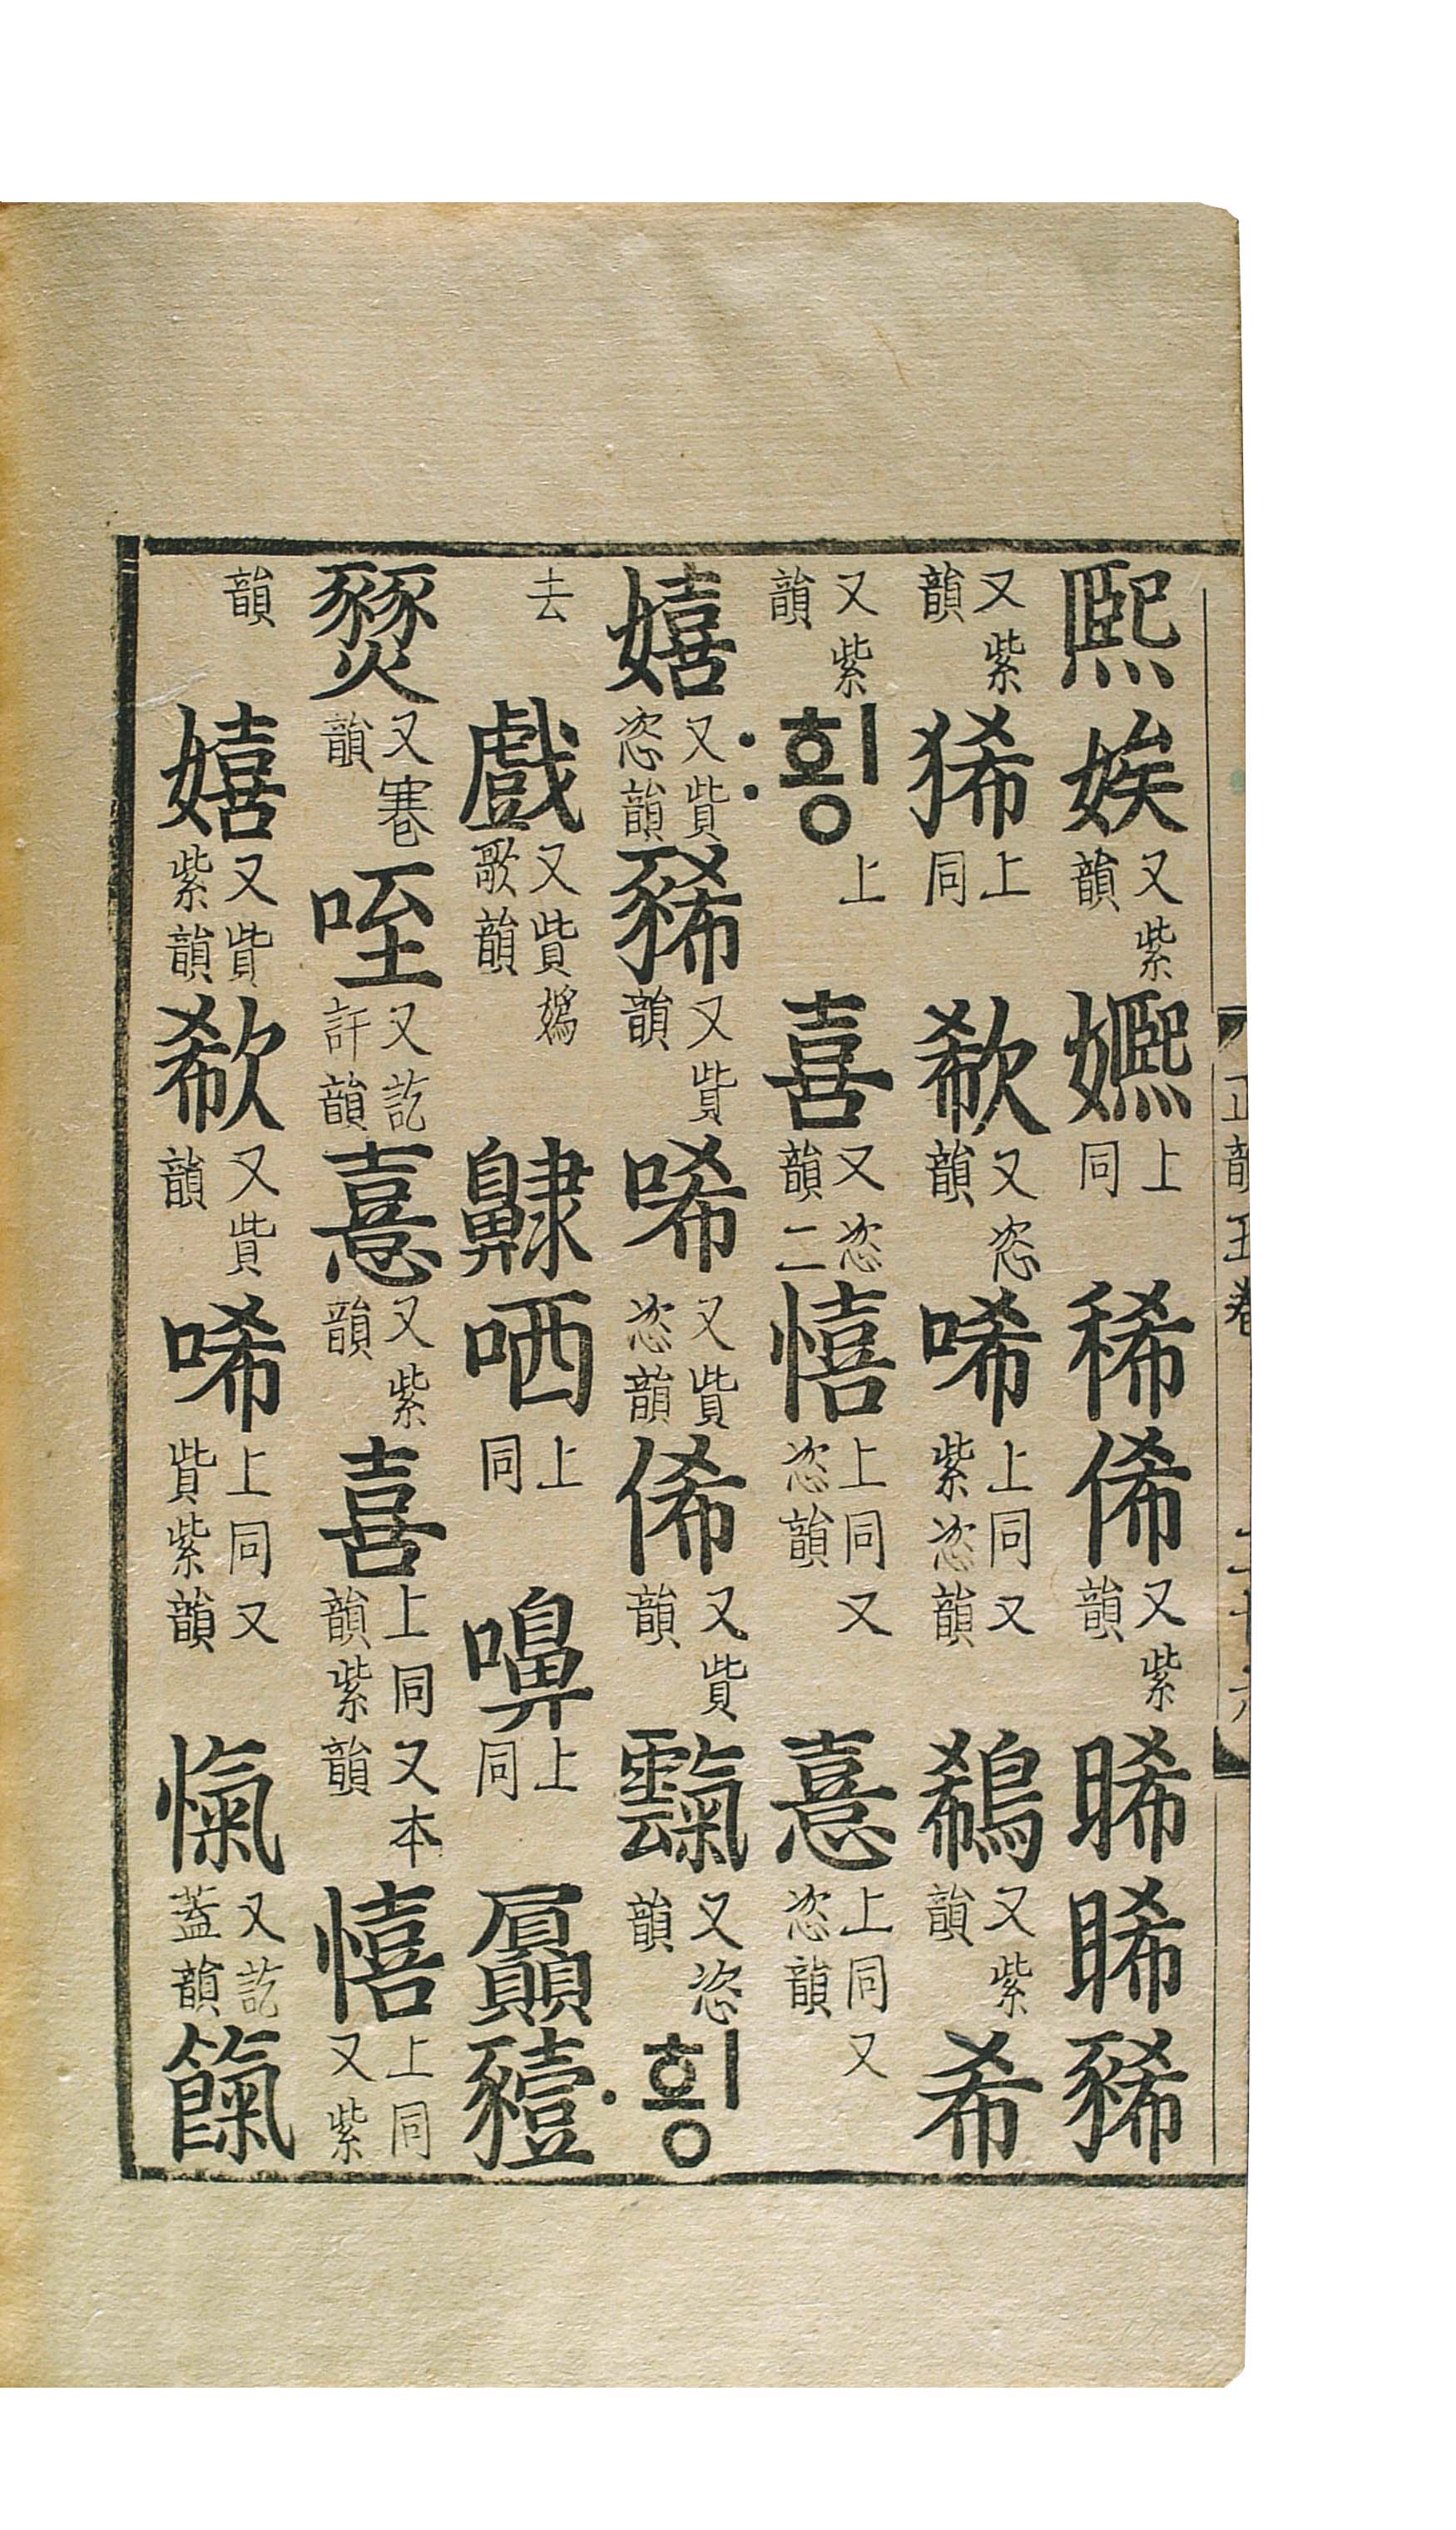 熙娭又紫韻㜯上同稀俙又紫韻晞睎豨
又紫韻狶上同欷又恣韻唏上同又紫恣韻鵗又紫韻希
又紫韻힁上喜又恣韻二憘上同又恣韻憙上同又恣韻
嬉又貲恣韻豨又貲韻唏又貲恣韻俙又貲韻霼又恣韻힁
去戲又貲嫣歌韻齂呬上同嚊上同屭豷
燹又寋韻咥又訖許韻憙又紫韻喜上同又本韻紫韻憘上同又紫
韻嬉又貲紫韻欷又貲韻唏上同又貲紫韻愾又訖蓋韻餼
正韻 卷